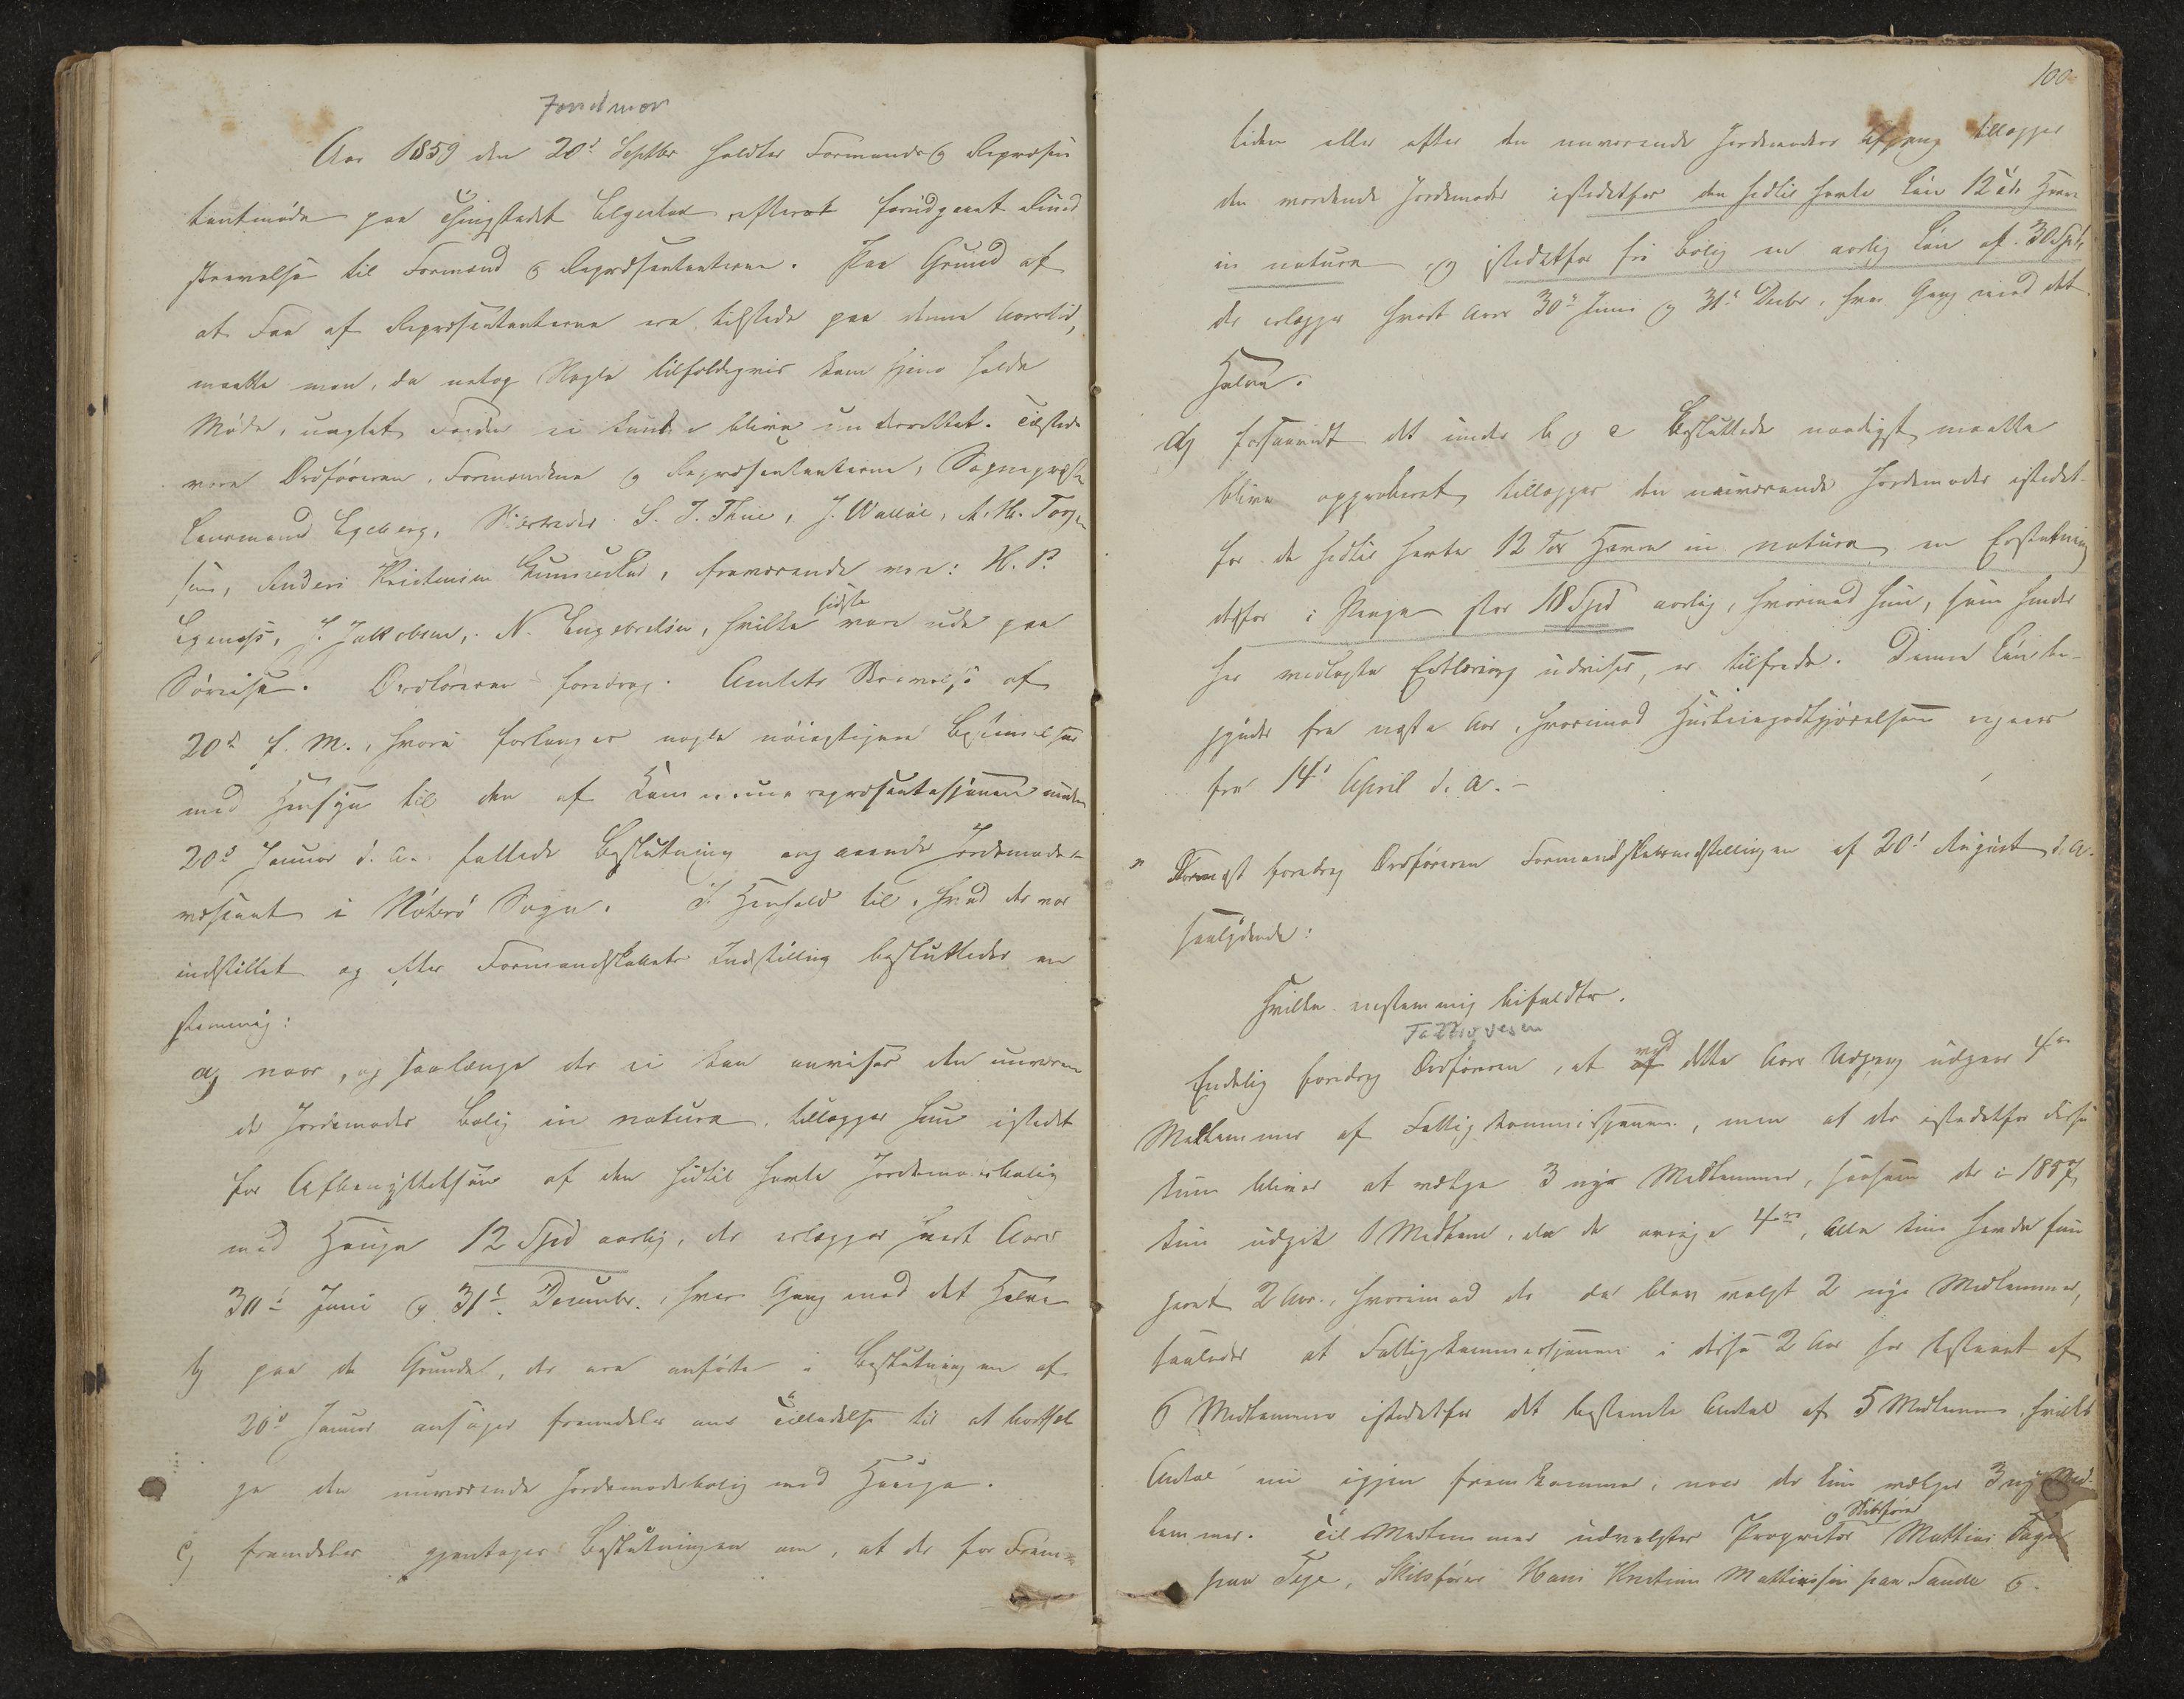 Jordmor
Aar 1859 den 20d Septbr holdtes Formands og Repræsen
tantmøde paa Thingstedet Elgestad efterat forudgaaet Rund
skrivelse til Formænd og Repræsentanterne. Paa Grund af
at Faa af Repræsentanterne ere tilstede paa denne Aarstid,
maatte man, da netop Nogle tilfældigvis kom hjem holde
Møde, uagtet Foreden ei kunde blive underrettet. Tilstede
vare Ordføreren, Formændene og Repræsentanterne, Sognepræst
Lensmand Egeberg, S. J. Thue, J. Walløe, A. M. Torger
sen, Anders Kristensen Gunnestad, fraværende vare: H. P.
J. Jakobsen, N. Engebretsen, hvilke sidste vare ude paa
Søreise. Ordføreren foredrog Amtets Skrivelse af
20d f. M., hvori forlanges nogle nøiagtigere Bestemmelser
med Hensyn til den af Kommunerepræsentasjonen under
20d Januar d. A. fattede Beslutning angaaende Jordemoder-
væsenet i Nøterø Sogn. I Henhold til, hvad der var
indstillet og efter Formandskabets Indstilling besluttedes en
stemmig:
a) naar, og saalænge der ei kan anvises den nuværen
de Jordemoder Bolig in natura, tillægges hun istedet
for Afbenyttelsen af den hidtil havte Jordemoderbolig
med Hauge 12 Spd aarlig, der erlægges hvert Aars
30te Juni og 31te Decembr., hver Gang med det Halve
b) paa de Grunde, der ere anførte i Beslutningen af
20d Januar ansøges fremdeles om Tilladelse til at bortsæl
ge den nuværende Jordemoderbolig med Hauge.
c) fremdeles gjentages Beslutningen om, at der for Frem=
100
tiden eller efter den nuværende Jordemoders Afgang tillægges
den vordende Jordemoder istedetfor den hidtil havte Løn 12 Tdr Havre
in natura, og istedetfor fri Bolig en aarlig Løn af 30 Spd,
der erlægges hvert Aars 30te Juni og 31te Decbr. hver Gang med det
Halve.
d) forsaavidt det under b og c Besluttede naadigst maatte
blive approberet, tillægges den nuværende Jordemoder istedet-
for de hidtil havte 12 Tdr Havre in natura en Erstatning
derfor i Penge stor 18 Spd aarlig, hvormed hun, som hendes
her vedlagte Erklæring udviser, er tilfreds. Denne Løn be-
gynder fra næste Aar, hvorimod Husleiegodtgjørelsen regnes
fra 14d April d. A. -
Dernæst foredrog Ordføreren Formandskabsindstillingen af 20d August d. A.
saalydende:
Hvilke enstemmig bifaldtes.
Fattigvesen
Endelig foredrog Ordføreren, at ved dette Aars Udgang udgaar 4re
Medlemmer af Fattigkommissjonen, men at der istedetfor disse
kun bliver at vælge 3 nye Medlemmer, saasom der i 1857
kun udgik 1 Medlem, da de øvrige 4re, alle kun havde fun
geret 2 Aar, hvorimod der da blev valgt 2 nye Medlemmer,
saaledes at Fattigkommissjonen i disse 2 Aar har bestaaet af
6 Medlemmer istedetfor det bestemte Antal af 5 Medlemmer, hvilket
Antal nu igjen fremkommer, naar der kun vælges 3 nye Med-
lemmer. Til Medlemmer udvalgtes Proprietær og Skibsfører Mathias Føyn
paa Teje, Skibsfører Hans Kristian Mathiassen paa Sande og